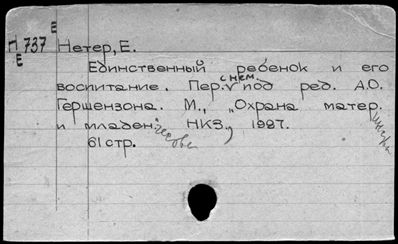 П 737 Нетер, Е.
Е
Единственный ребенок и его
воспитание. Пер. с нем. под ред. А.О.
Гершензона. М., „Охрана матер.
и младен. НКЗ", 1927.
61 стр.